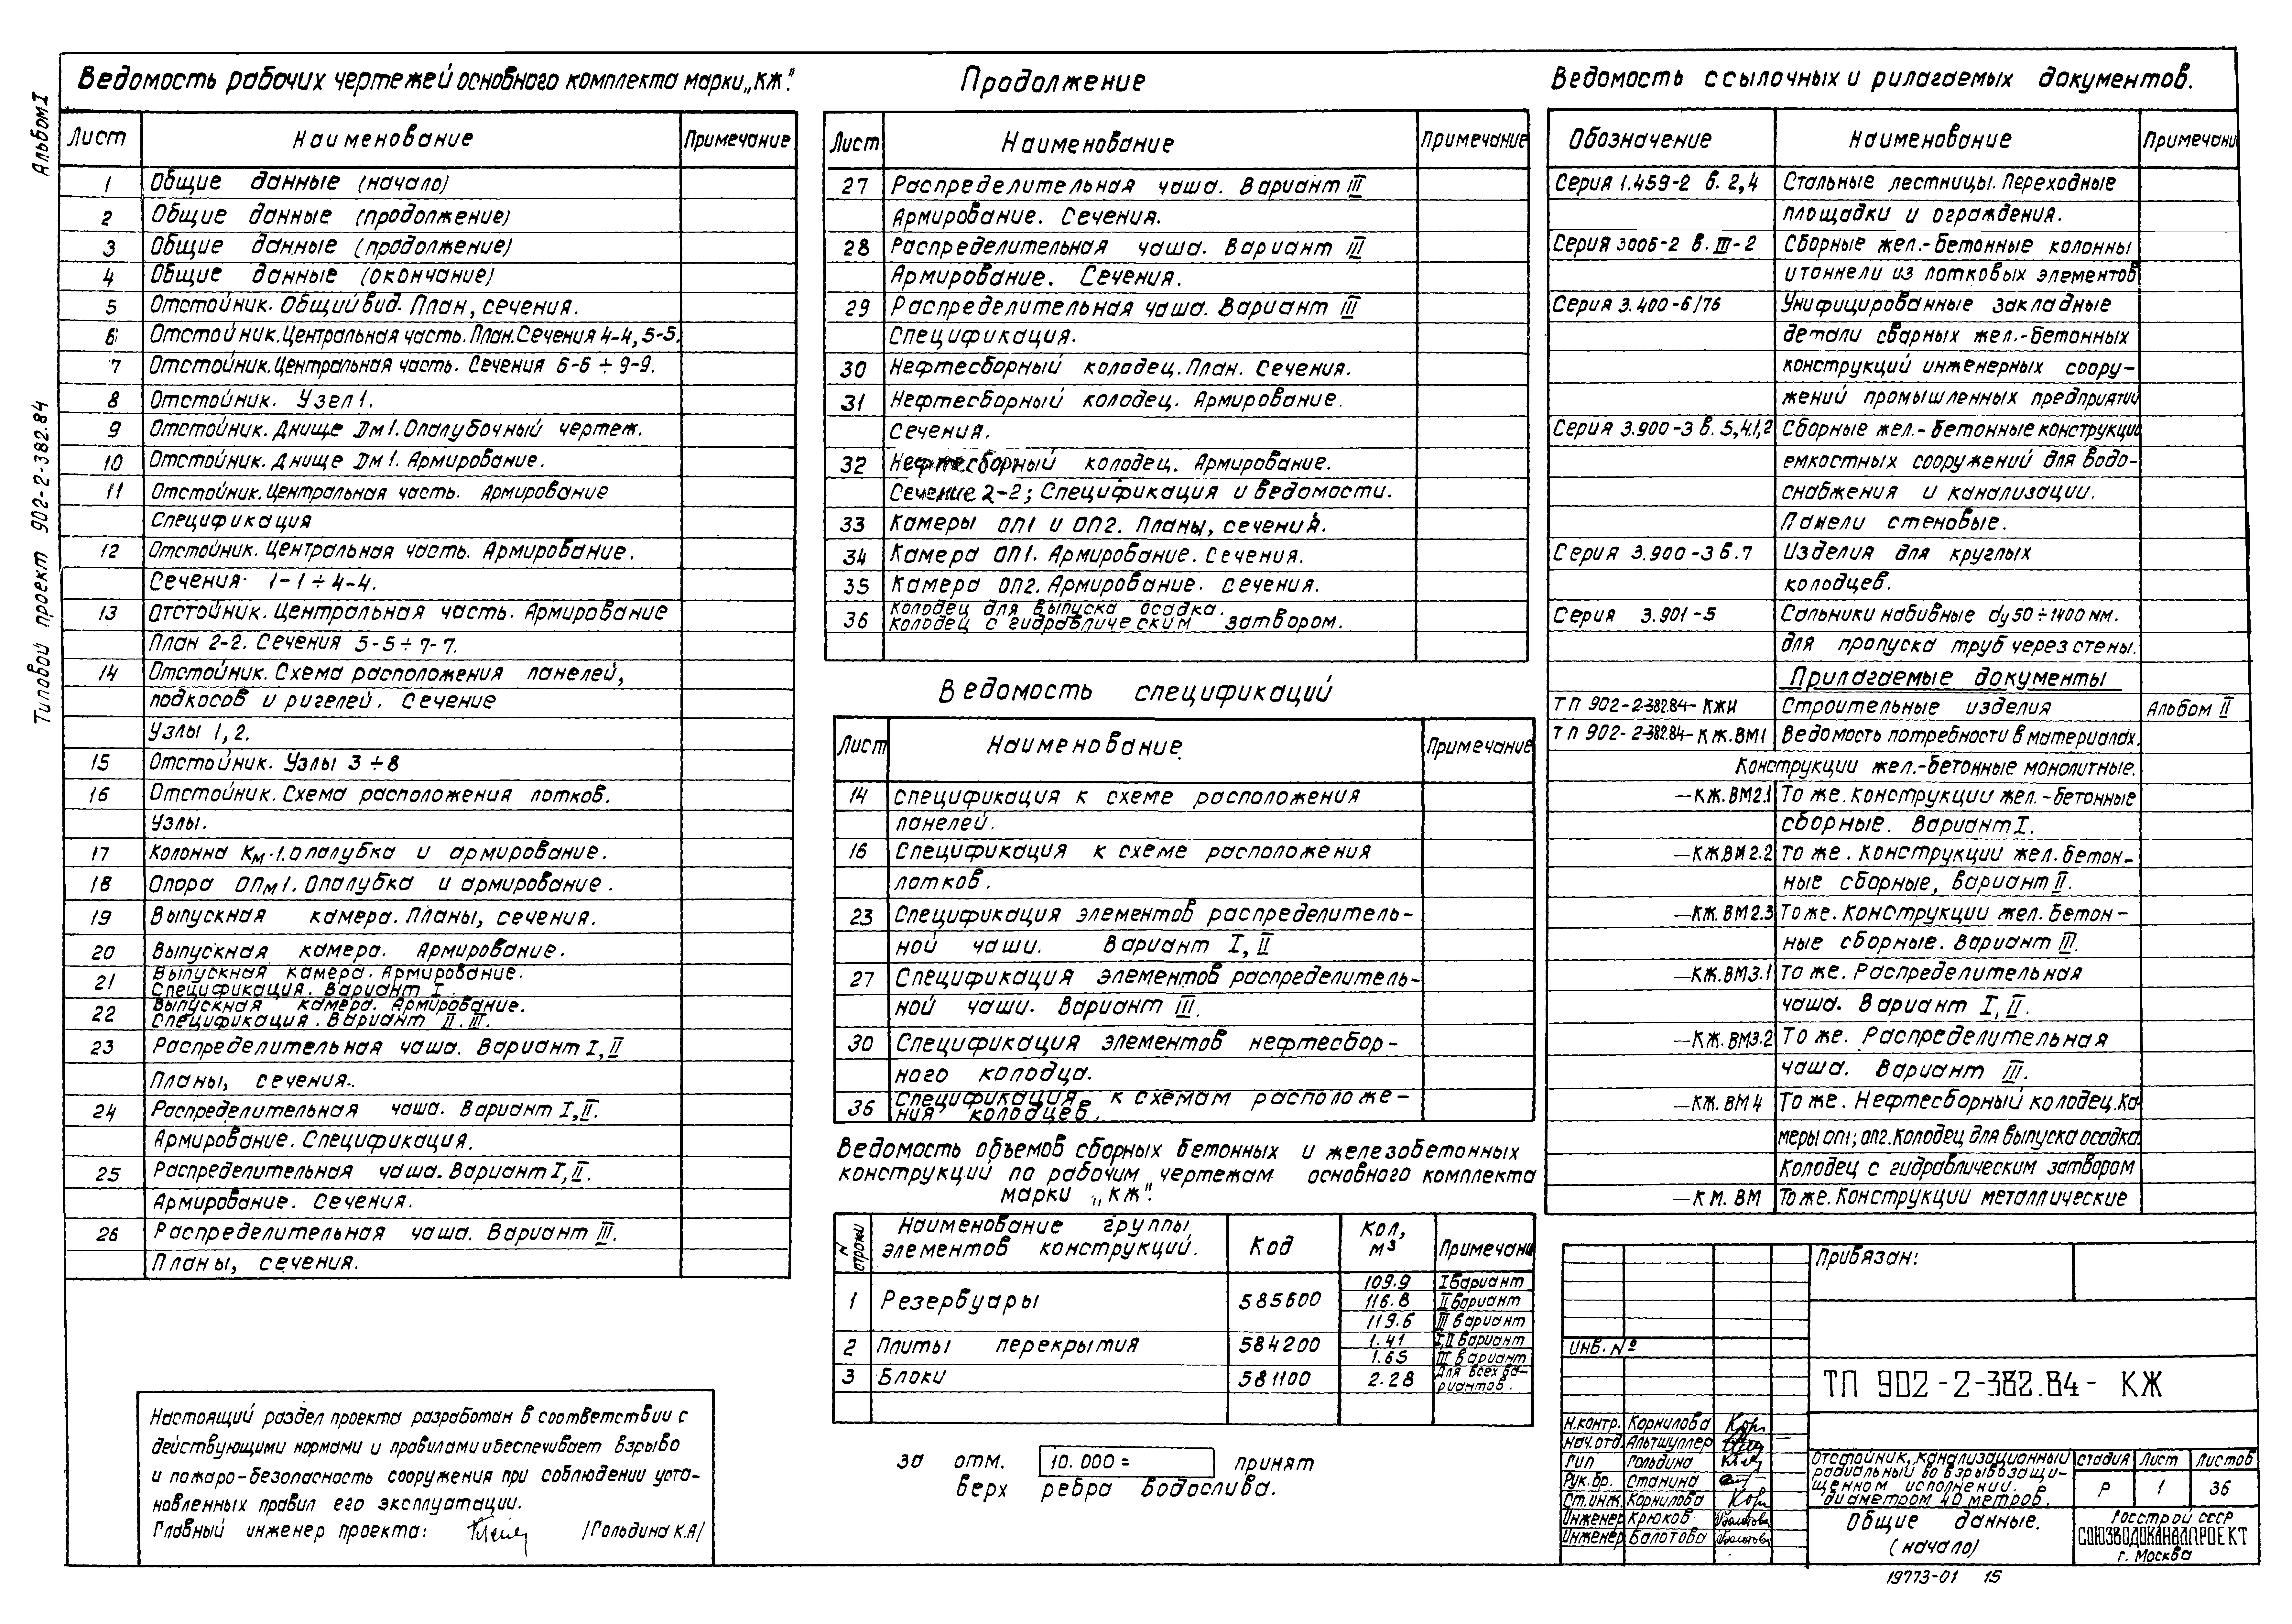 Альбом I
Типовой проект 902-2-382.84
Ведомость рабочих чертежей основного комплекта марки „КЖ".
Лист Наименование Примечание
1 Общие данные (начало)
2 Общие данные (продолжение)
3 Общие данные (продолжение)
4 Общие данные (окончание)
5 Отстойник. Общий вид. План, сечения.
6 Отстойник. Центральная часть. План. Сечения 4-4, 5-5.
7 Отстойник. Центральная часть. Сечения 6-6 ÷ 9-9.
8 Отстойник. Узел 1.
9 Отстойник. Днище Дм1. Опалубочный чертеж.
10 Отстойник. Днище Дм1. Армирование.
11 Отстойник. Центральная часть. Армирование
Спецификация
12 Отстойник. Центральная часть. Армирование.
Сечения 1-1 ÷ 4-4.
13 Отстойник. Центральная часть. Армирование
План 2-2. Сечения 5-5 ÷ 7-7.
14 Отстойник. Схема расположения панелей,
подкосов и ригелей. Сечение
Узлы 1, 2.
15 Отстойник. Узлы 3 ÷ 8
16 Отстойник. Схема расположения лотков.
Узлы.
17 Колонна Км-1. Опалубка и армирование.
18 Опора ОПм1. Опалубка и армирование.
19 Выпускная камера. Планы, сечения.
20 Выпускная камера. Армирование.
21 Выпускная камера. Армирование.
Спецификация. Вариант I.
22 Выпускная камера. Армирование.
Спецификация. Вариант II. III.
23 Распределительная чаша. Вариант I, II
Планы, сечения.
24 Распределительная чаша. Вариант I, II.
Армирование. Спецификация.
25 Распределительная чаша. Вариант I, II.
Армирование. Сечения.
26 Распределительная чаша. Вариант III.
Планы, сечения.
Настоящий раздел проекта разработан в соответствии с
действующими нормами и правилами и обеспечивает взрыво
и пожаро-безопасность сооружения при соблюдении уста-
новленных правил его эксплуатации.
Главный инженер проекта: /Гольдина К.А/
Продолжение
Лист Наименование Примечание
27 Распределительная чаша. Вариант III
Армирование. Сечения.
28 Распределительная чаша. Вариант III
Армирование. Сечения.
29 Распределительная чаша. Вариант III
Спецификация.
30 Нефтесборный колодец. План. Сечения.
31 Нефтесборный колодец. Армирование.
Сечения.
32 Нефтесборный колодец. Армирование.
Сечение 2-2; Спецификация и ведомости.
33 Камеры ОП1 и ОП2. Планы, сечения.
34 Камера ОП1. Армирование. Сечения.
35 Камера ОП2. Армирование. Сечения.
36 Колодец для выпуска осадка.
Колодец с гидравлическим затвором.
Ведомость спецификаций
Лист Наименование Примечание
14 Спецификация к схеме расположения
панелей.
16 Спецификация к схеме расположения
лотков.
23 Спецификация элементов распределитель-
ной чаши. Вариант I, II
27 Спецификация элементов распределитель-
ной чаши. Вариант III.
30 Спецификация элементов нефтесбор-
ного колодца.
36 Спецификация к схемам расположе-
ния колодцев.
Ведомость объемов сборных бетонных и железобетонных
конструкций по рабочим чертежам основного комплекта
марки „КЖ".
N строки Наименование группы элементов конструкций. Код Кол, м³ Примечани
1 Резервуары 585600 109.9 I вариант
116.8 II вариант
119.6 III вариант
2 Плиты перекрытия 584200 1.41 I, II вариант
1.65 III вариант
3 Блоки 581100 2.28 Для всех ва-
риантов.
за отм. 10.000 = принят
верх ребра водослива.
Ведомость ссылочных и рилагаемых документов.
Обозначение Наименование Примечани
Серия 1.459-2 в. 2,4 Стальные лестницы. Переходные
площадки и ограждения.
Серия 3006-2 в. III-2 Сборные жел.-бетонные колонны
и тоннели из лотковых элементов
Серия 3.400-6/76 Унифицированные закладные
детали сварных жел.-бетонных
конструкций инженерных соору-
жений промышленных предприятий
Серия 3.900-3 в. 5,4.1,2 Сборные жел.-бетонные конструкции
емкостных сооружений для водо-
снабжения и канализации.
Панели стеновые.
Серия 3.900-3 в. 7 Изделия для круглых
колодцев.
Серия 3.901-5 Сальники набивные dу50÷1400 мм.
для пропуска труб через стены.
Прилагаемые документы
ТП 902-2-382.84-КЖИ Строительные изделия Альбом II
ТП 902-2-382.84-КЖ.ВМ1 Ведомость потребности в материалах.
Конструкции жел.-бетонные монолитные.
—КЖ.ВМ2.1 То же. Конструкции жел.-бетонные
сборные. Вариант I.
—КЖ.ВМ2.2 То же. Конструкции жел. бетон-
ные сборные, вариант II.
—КЖ.ВМ2.3 То же. Конструкции жел. бетон-
ные сборные. Вариант III.
—КЖ.ВМ3.1 То же. Распределительная
чаша. Вариант I, II.
—КЖ.ВМ3.2 То же. Распределительная
чаша. Вариант III.
—КЖ.ВМ4 То же. Нефтесборный колодец. Ка-
меры ОП1; ОП2. Колодец для выпуска осадка
Колодец с гидравлическим затвором
—КМ.ВМ То же. Конструкции металлические
Привязан:
Инв. №
ТП 902-2-382.84- КЖ
Н.контр. Корнилова
Нач.отд. Альтшуллер
Гип Гольдина
Рук.бр. Станина
Ст.инж. Корнилова
Инженер Крюков
Инженер Балотова
Отстойник, канализационный
радиальный во взрывозащи-
щенном исполнении.
диаметром 40 метров.
стадия Лист Листов
Р 1 36
Общие данные.
(начало)
Госстрой СССР
СОЮЗВОДОКАНАЛПРОЕКТ
г. Москва
19773-01 15